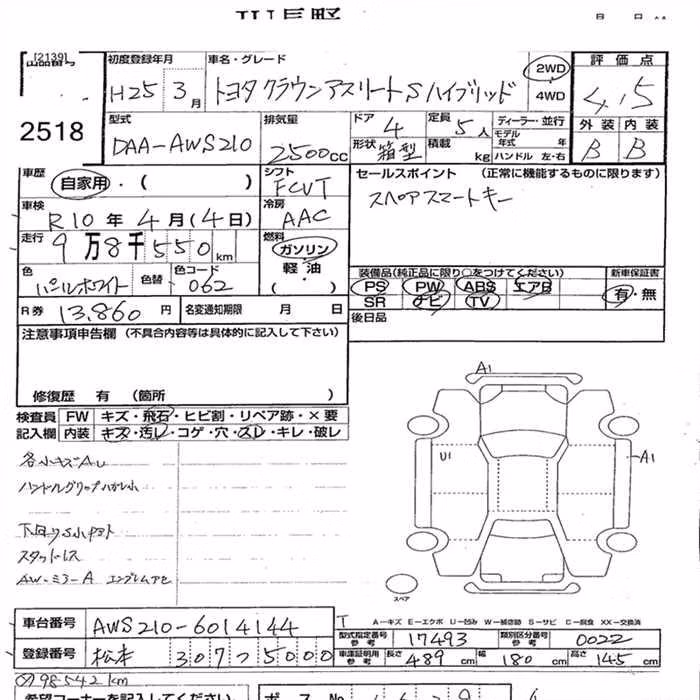 [2139]
2518
初度登録年月 車名・グレード 評価点
H25 3月 トヨタ クラウンアスリートSハイブリッド 2WD 4WD 4.5
型式 排気量 ドア 定員 ディーラー・並行 外装 内装
DAA-AWS210 2500cc 4 5人 モデル年式 年 B B
形状 箱型 積載 kg ハンドル 左・右
車歴 シフト セールスポイント (正常に機能するものに限ります)
自家用・( ) FCVT スペアスマートキー
車検 冷房
R10年4月(4日) AAC
走行 燃料
9万8千550km ガソリン
色 色替 色コード 軽油 装備品(純正品に限り○をつけてください) 新車保証書
パールホワイト 062 ・( ) PS PW ABS エアB 有・無
SR ナビ TV
R券 13,860円 名変通知期限 月 日 後日品
注意事項申告欄 (不具合内容等は具体的に記入して下さい)
修復歴 有 (箇所 )
検査員 FW キズ・飛石・ヒビ割・リペア跡・×要
記入欄 内装 キズ・汚レ・コゲ・穴・スレ・キレ・破レ
A1
U1
A1
各小キズAU
ハンドルグリップハガレ小
スタッドレス
AW-ミラーA
スペア
A-キズ E-エクボ U-凹み W-補修跡 S-サビ C-腐食 XX-交換済
車台番号 AWS210-6014144
型式指定番号 参考 17493 類別区分番号 参考 0022
登録番号 松本 307 5000
車庫証明用 参考 長さ 489cm 幅 180cm 高さ 145cm
98542km
希望コーナーを記入してください